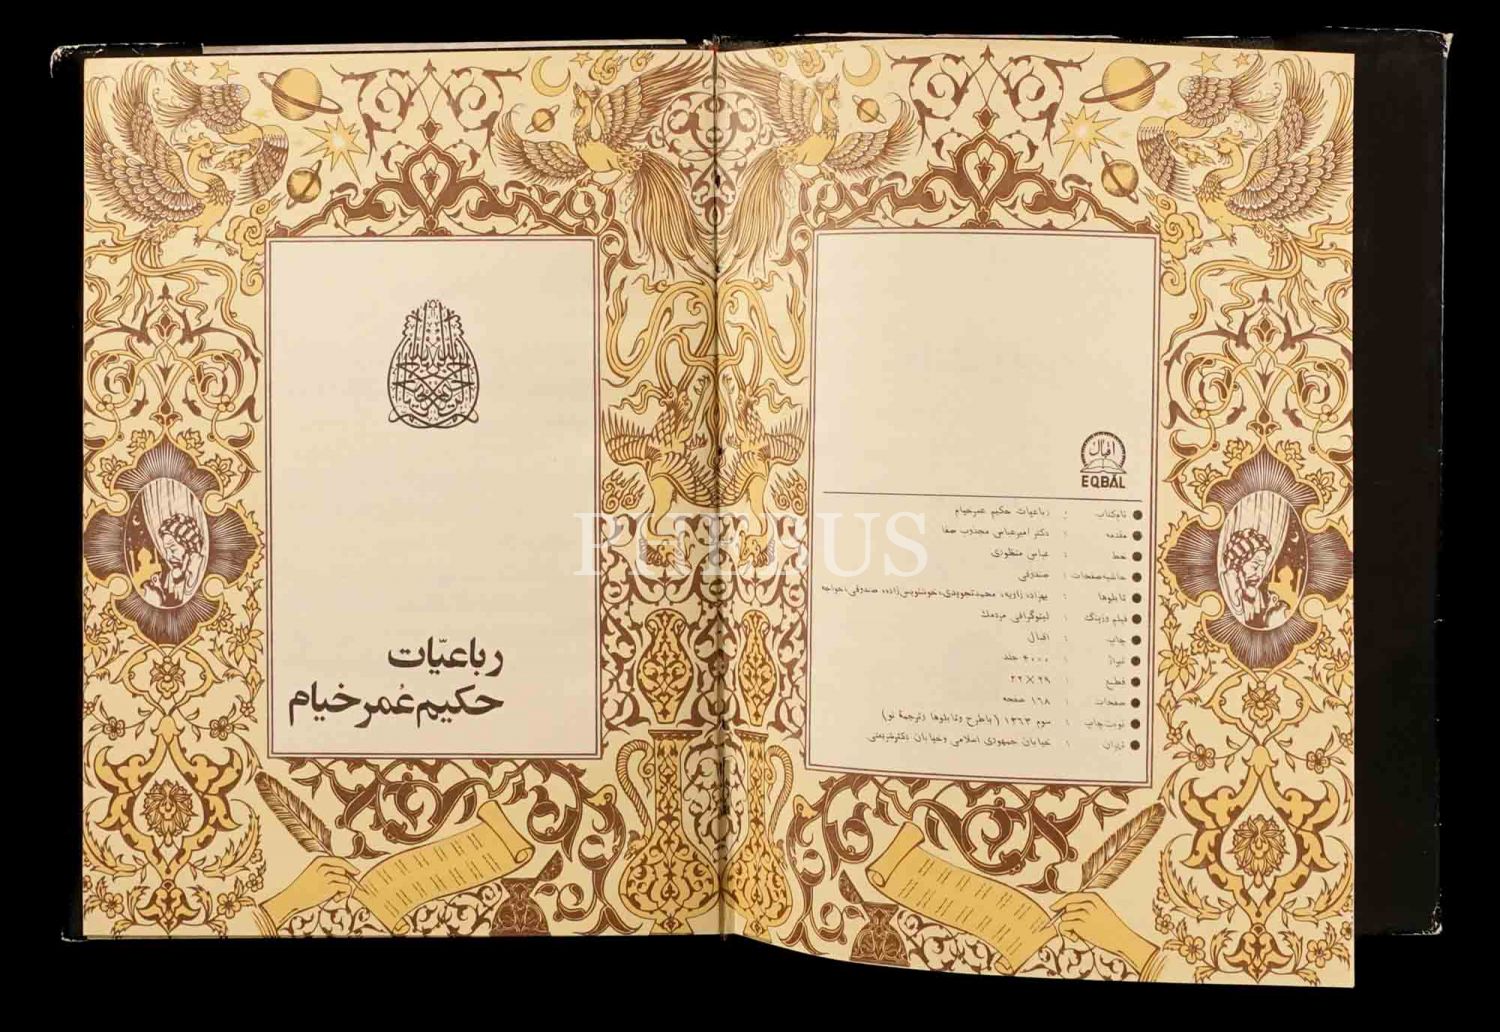 رباعیّات
حکیم عُمر خیام
اقبال
EQBÂL
نام کتاب : رباعیات حکیم عمرخیام
مقدمه : دکتر امیرعباس مجذوب صفا
خط : عباس منظوری
حاشیه صفحات : صندوقی
تابلوها : بهزاد، زاویه، محمدتجویدی، خوشنویس‌زاده، صندوقی، خواجه
فیلم و زینگ : لیتوگرافی مردمک
چاپ : اقبال
تیراژ : ۴۰۰۰ جلد
قطع : ۲۹ × ۲۲
صفحات : ۱۶۸ صفحه
نوبت چاپ : سوم ۱۳۶۳ (باطرح و تابلوها و ترجمهٔ نو)
تهران : خیابان جمهوری اسلامی و خیابان دکترشریعتی
PHEBUS